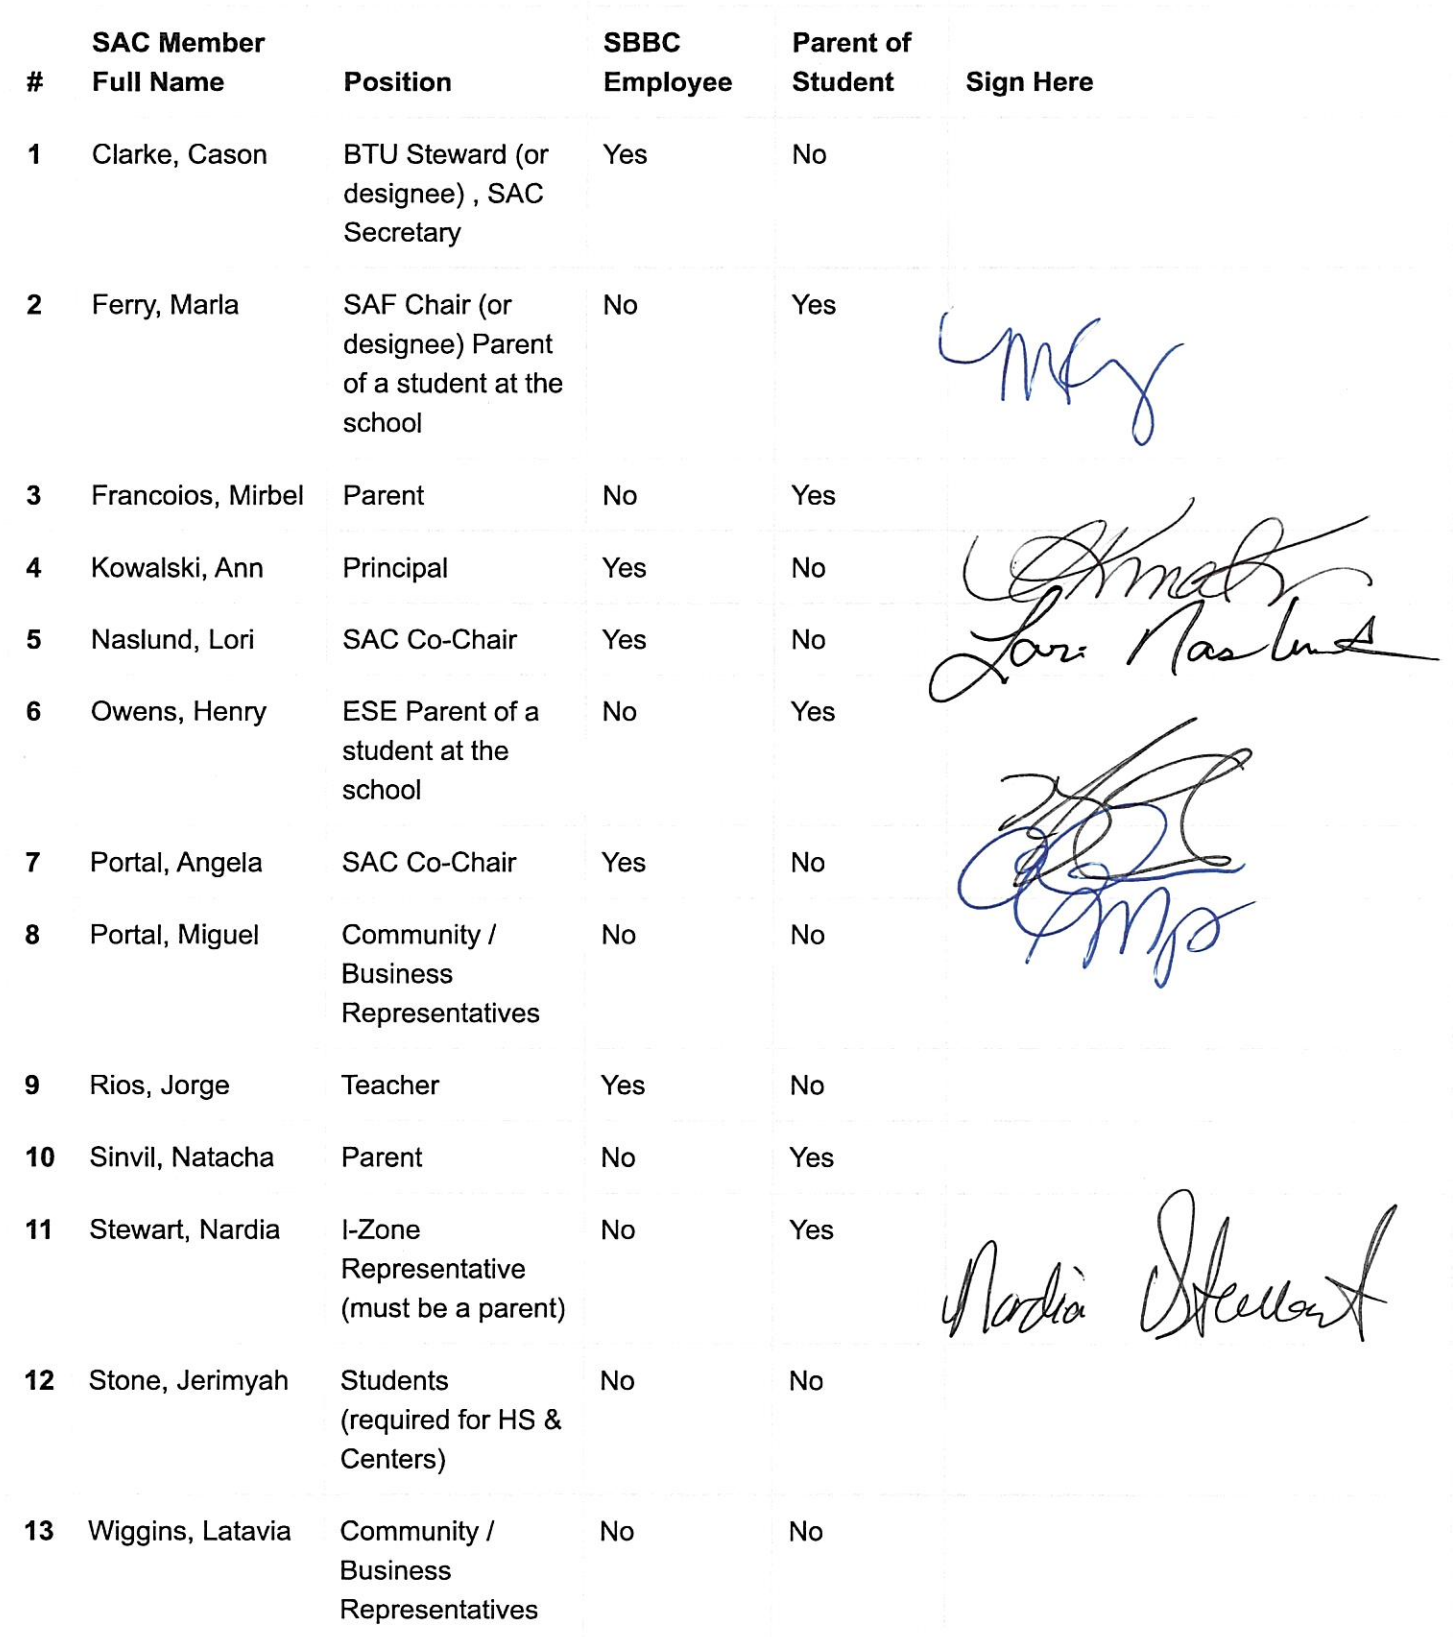 SAC Member SBBC Parent of
# Full Name Position Employee Student Sign Here
1 Clarke, Cason BTU Steward (or Yes No
designee) , SAC
Secretary
2 Ferry, Marla SAF Chair (or No Yes
designee) Parent
of a student at the
school
3 Francoios, Mirbel Parent No Yes
4 Kowalski, Ann Principal Yes No
5 Naslund, Lori SAC Co-Chair Yes No Lori Naslund
6 Owens, Henry ESE Parent of a No Yes
student at the
school
7 Portal, Angela SAC Co-Chair Yes No
8 Portal, Miguel Community / No No
Business
Representatives
9 Rios, Jorge Teacher Yes No
10 Sinvil, Natacha Parent No Yes
11 Stewart, Nardia I-Zone No Yes
Representative
(must be a parent) Nardia Stewart
12 Stone, Jerimyah Students No No
(required for HS &
Centers)
13 Wiggins, Latavia Community / No No
Business
Representatives